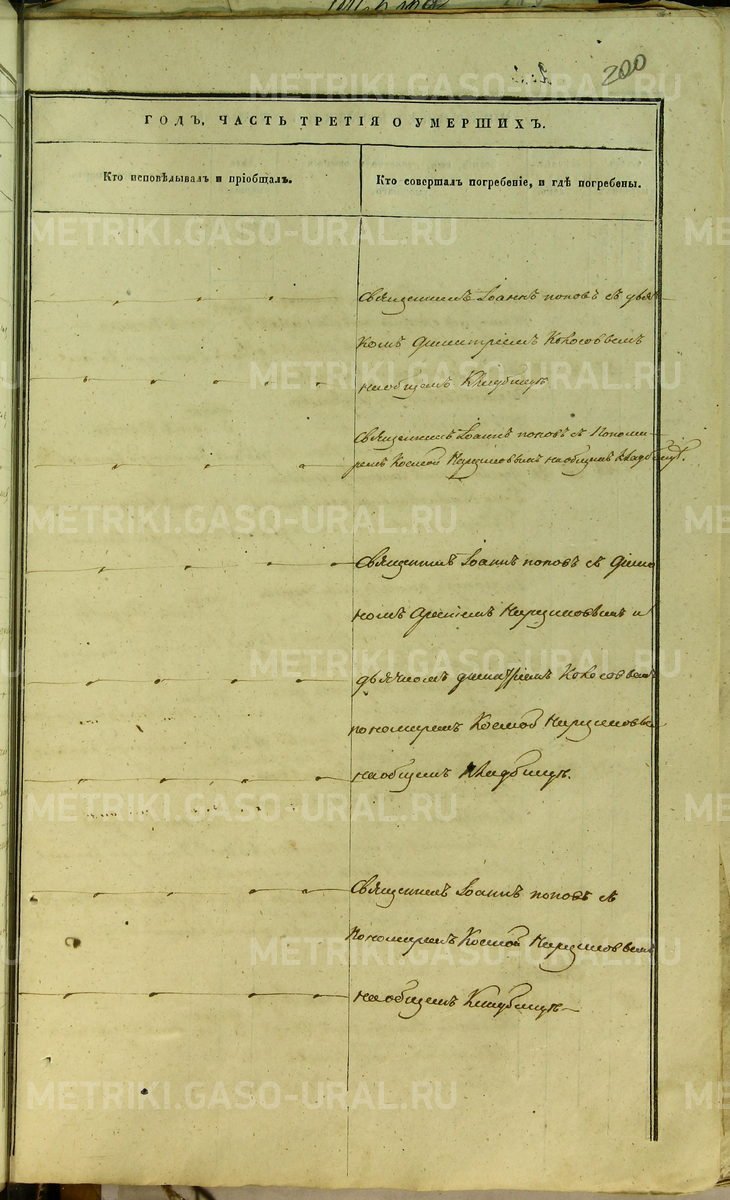 200
ГОДЪ, ЧАСТЬ ТРЕТІЯ О УМЕРШИХЪ.
Кто исповѣдывалъ и пріобщалъ.
Кто совершалъ погребеніе, и гдѣ погребены.
Священникъ Іоаннъ Поповъ съ дья-
комъ Димитріемъ Кокосовъмъ
на общемъ Кладбищѣ
Священникъ Іоаннъ Поповъ съ Понома-
ремъ Космой на общемъ Кладбищѣ.
Священникъ Іоаннъ Поповъ съ Діако
номъ и
дьячкомъ Димитріемъ Кокосовъмъ
пономаремъ Космой
на общемъ Кладбищѣ.
Священникъ Іоаннъ Поповъ съ
Пономаремъ Космой
на общемъ Кладбищѣ
METRIKI.GASO-URAL.RU